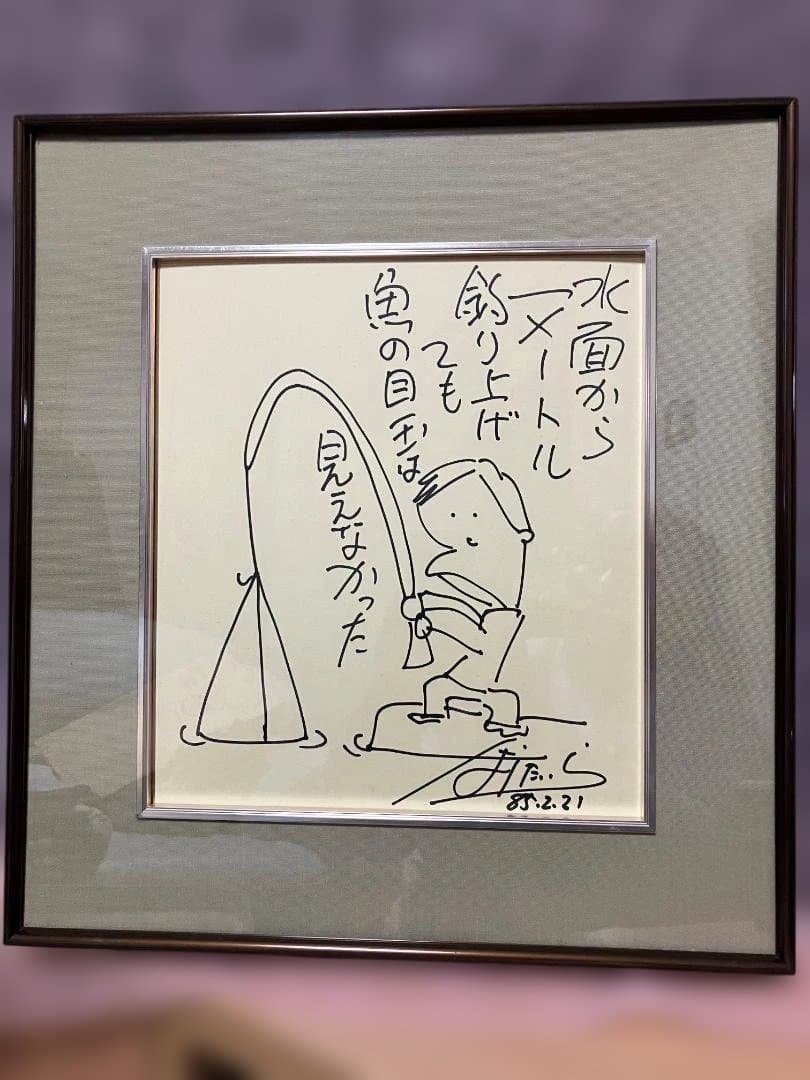 水面から
一メートル
釣り上げ
ても
魚の目玉は
見えなかった
おだら
85.2.21